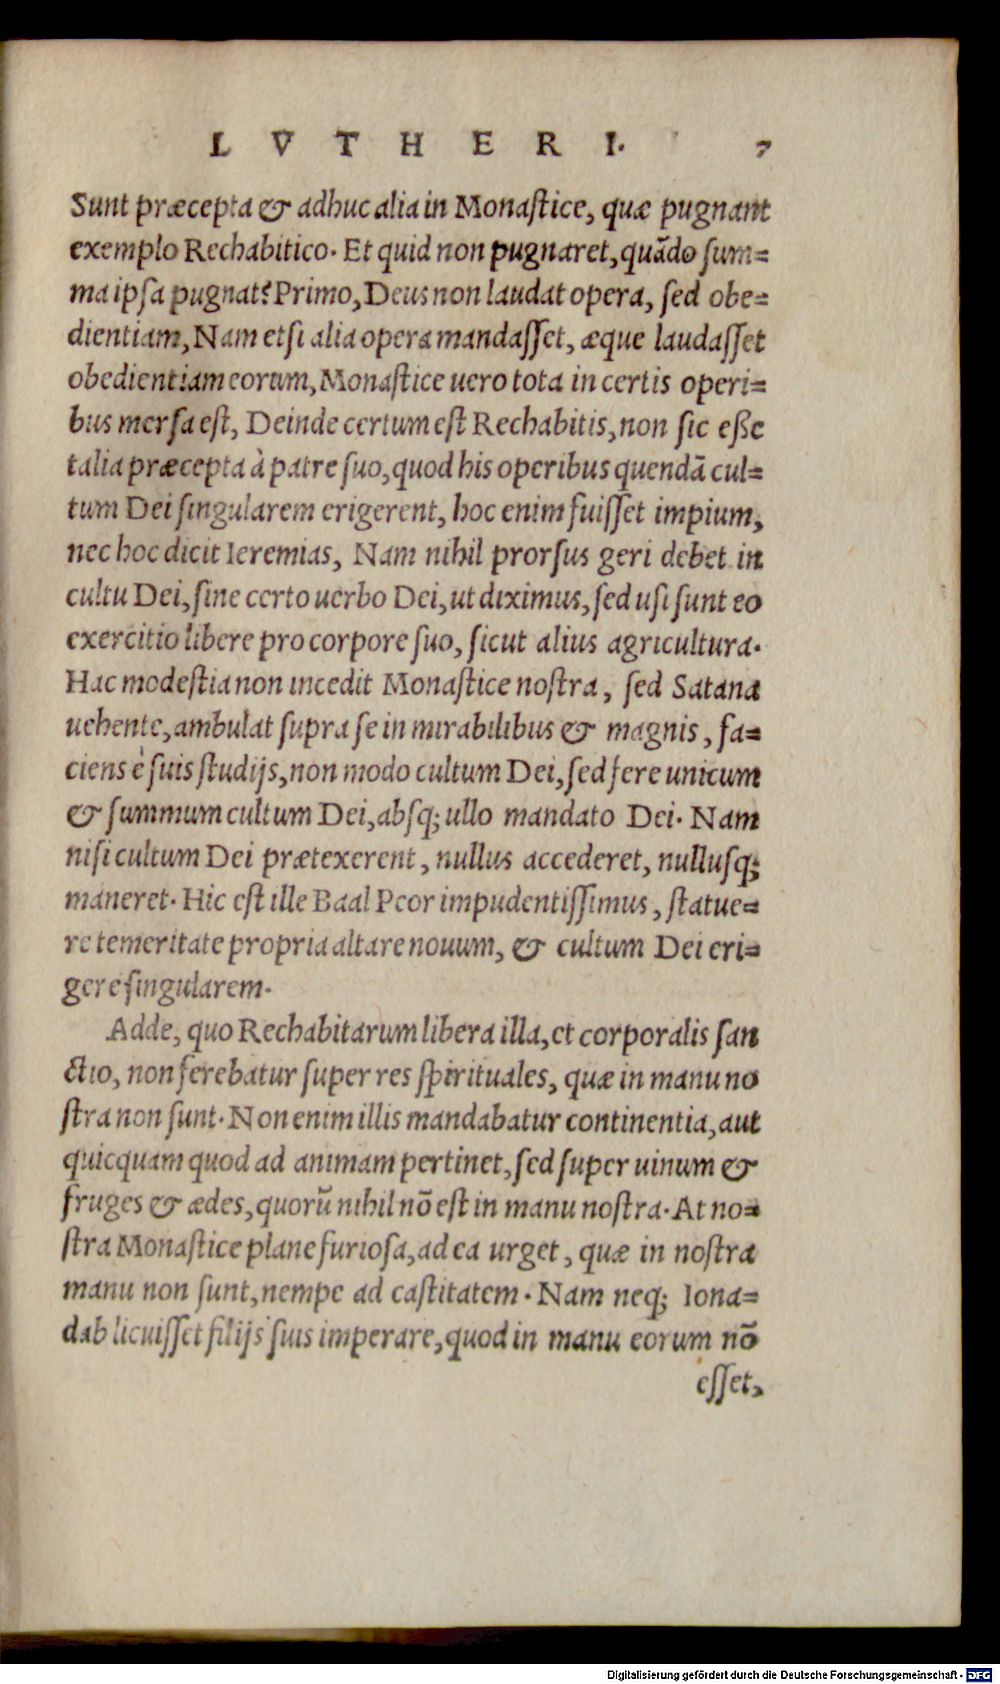 LVTHERI. 7
Sunt præcepta & adhuc alia in Monaſtice, quæ pugnant
exemplo Rechabitico. Et quid non pugnaret, quādo ſum=
ma ipſa pugnat? Primo, Deus non laudat opera, ſed obe=
dientiam, Nam etſi alia opera mandaſſet, æque laudaſſet
obedientiam eorum, Monaſtice uero tota in certis operi=
bus merſa eſt, Deinde certum eſt Rechabitis, non ſic eße
talia præcepta à patre ſuo, quod his operibus quendā cul=
tum Dei ſingularem erigerent, hoc enim fuiſſet impium,
nec hoc dicit Ieremias, Nam nihil prorſus geri debet in
cultu Dei, ſine certo uerbo Dei, ut diximus, ſed uſi ſunt eo
exercitio libere pro corpore ſuo, ſicut alius agricultura.
Hac modeſtia non incedit Monaſtice noſtra, ſed Satana
uehente, ambulat ſupra ſe in mirabilibus & magnis, fa=
ciens è ſuis ſtudijs, non modo cultum Dei, ſed fere unicum
& ſummum cultum Dei, abſq; ullo mandato Dei. Nam
niſi cultum Dei prætexerent, nullus accederet, nulluſq;
maneret. Hic eſt ille Baal Peor impudentiſſimus, ſtatue=
re temeritate propria altare nouum, & cultum Dei eri=
gere ſingularem.
Adde, quo Rechabitarum libera illa, et corporalis ſan
ctio, non ferebatur ſuper res ſpirituales, quæ in manu no
ſtra non ſunt. Non enim illis mandabatur continentia, aut
quicquam quod ad animam pertinet, ſed ſuper uinum &
fruges & ædes, quorū nihil nō eſt in manu noſtra. At no=
ſtra Monaſtice plane furioſa, ad ea urget, quæ in noſtra
manu non ſunt, nempe ad caſtitatem. Nam neq; Iona=
dab licuiſſet filijs ſuis imperare, quod in manu eorum nō
eſſet,
Digitalisierung gefördert durch die Deutsche Forschungsgemeinschaft - DFG